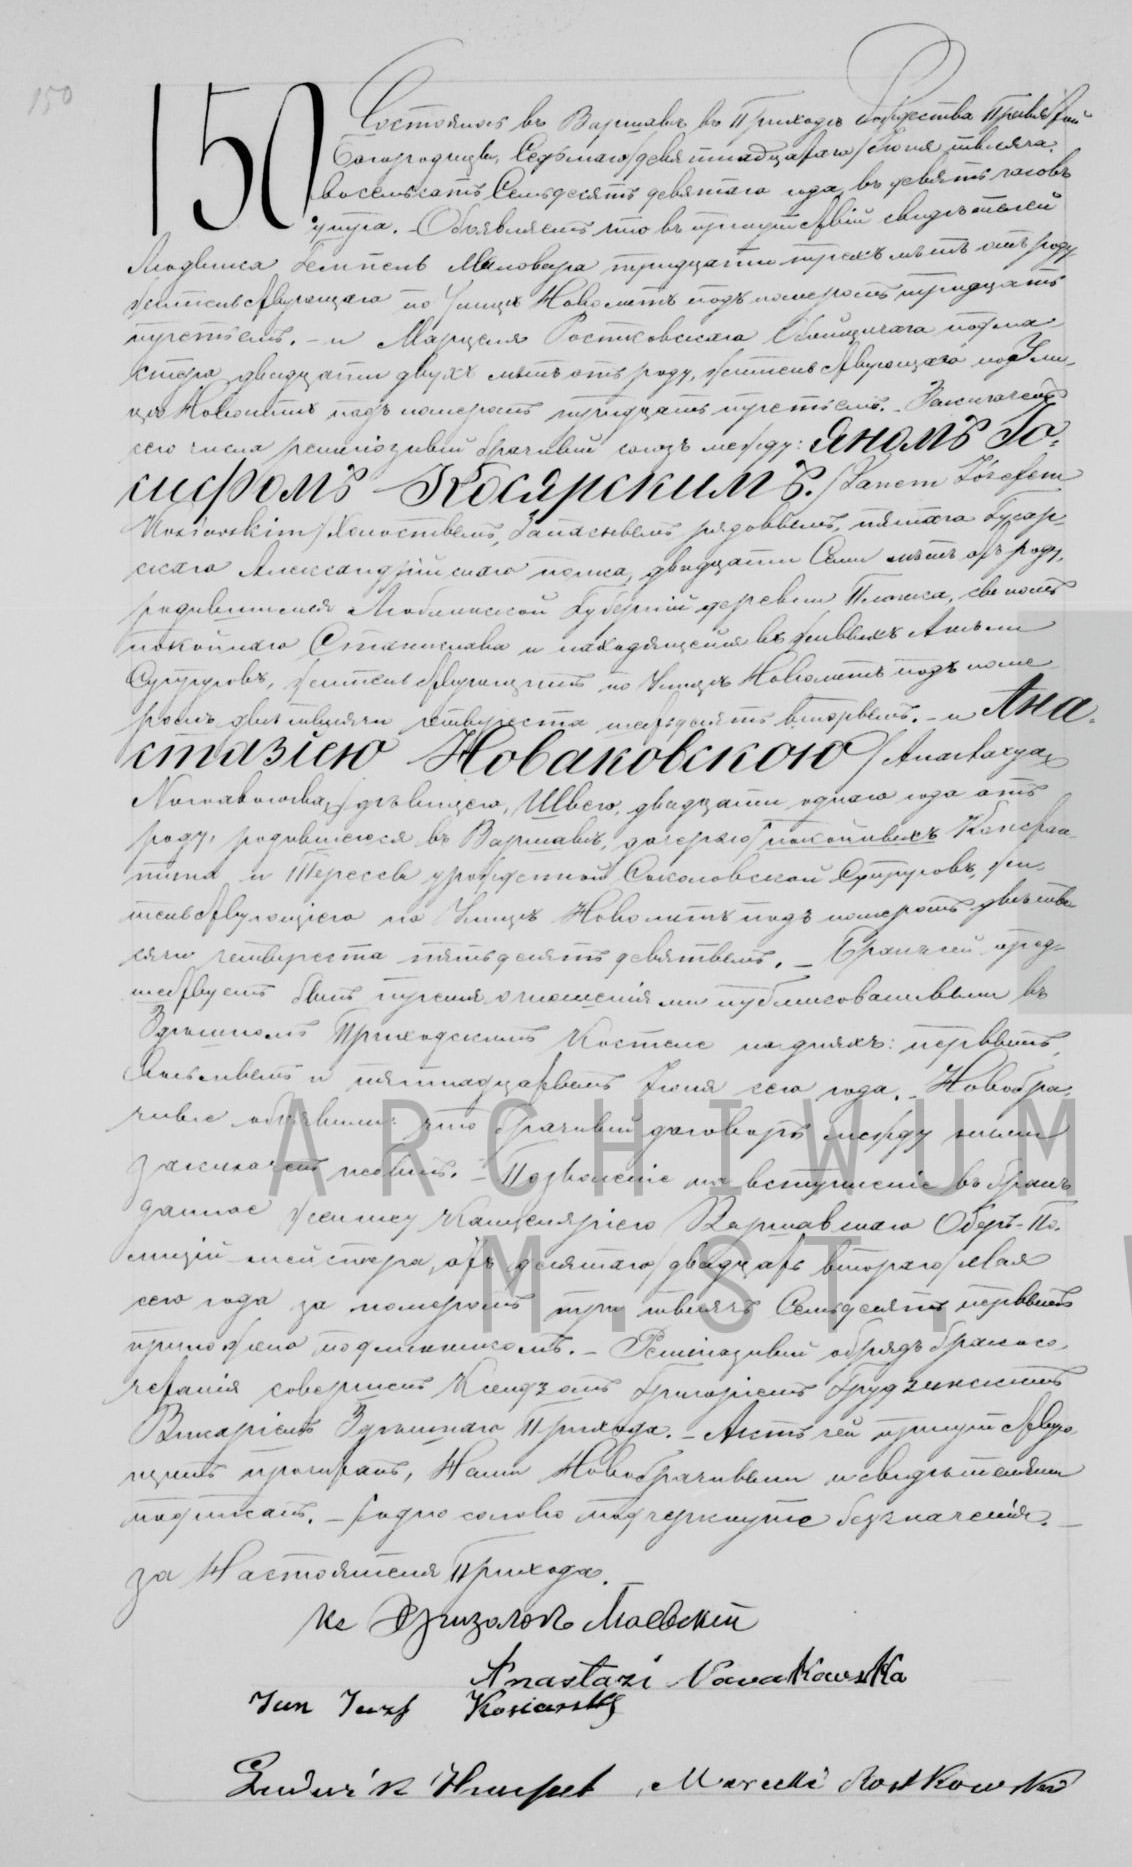 150
150 Состоялось въ Варшавѣ въ Приходѣ Рождества Пресвятой
Богородицы, Седьмаго/девятнадцатаго/Іюня тысяча
восемьсотъ Семьдесятъ девятаго года, въ девять часовъ
утра. – Объявляемъ что въ присутствіи свидѣтелей
Людвика Гемпель Маловара тридцати трехъ лѣтъ отъ роду
жительствующаго по Улицѣ Новолипкѣ подъ номеромъ тридцать
третьемъ. – и Марцелія Ростковскаго
двадцати двухъ лѣтъ отъ роду, жительствующаго по Ули-
цѣ Новолипкѣ подъ номеромъ тридцать третьемъ. – Заключенъ
сего числа религіозный брачный союзъ между: Яномъ Іо-
сифомъ Косярскимъ./Janem Józefem
Kosiarskim/Холостымъ, Запаснымъ рядовымъ, пятаго Гусар-
скаго Александрійскаго полка, двадцати Семи лѣтъ отъ роду,
родившимся Люблинской Губерніи деревни сыномъ
покойнаго Станислава и находящейся въ живыхъ
Супруговъ, жительствующимъ по Улицѣ Новолипкѣ подъ номе
ромъ двѣ тысячи четыреста шестьдесятъ вторымъ. – и Ана-
стазіею Новаковскою/Anastazyą
Nowakowską/дѣвицею, Швею, двадцати одного года отъ
роду, родившеюся въ Варшавѣ, дочерью покойныхъ Констан-
тина и Терессы урожденной Соколовской Супруговъ, жи-
тельствующею по Улицѣ Новолипкѣ подъ номеромъ двѣ ты-
сячи четыреста пятьдесятъ девятымъ. – Браку сей пред-
шествуетъ быть тремя оглашеніями публикованными въ
Здѣшномъ Приходскимъ Костелѣ на дняхъ: первымъ,
Восьмымъ и пятнадцатымъ Іюня сего года. – Новобра-
чные объявили: что брачный договоръ между ними
заключенъ небылъ. – Позволеніе на вступленіе въ бракъ
данное Жениху Канцеляріею Варшавскаго Оберъ-По-
лиціймейстера, отъ десятаго/двадцать втораго/Мая
сего года за номеромъ три тысячъ Семьдесятъ первымъ
приложено подлинникомъ. – Религіозный обрядъ бракосо-
четанія совершенъ Ксендзомъ Григоріемъ Грудзинскимъ
Викаріемъ Здѣшнаго Прихода. – Актъ сей присутствую-
щимъ прочитанъ, Нами Новобрачными и свидѣтелями
подписанъ. – /одно солово подчеркнуте безъ наченія. –
за Настоятеля Прихода. –
Кс
Anastazi Nowakowska
Jan Juzf Kosiarski
Ludwik Hempel, Marceli Rostkowski
ARCHIWUM
M. ST. W